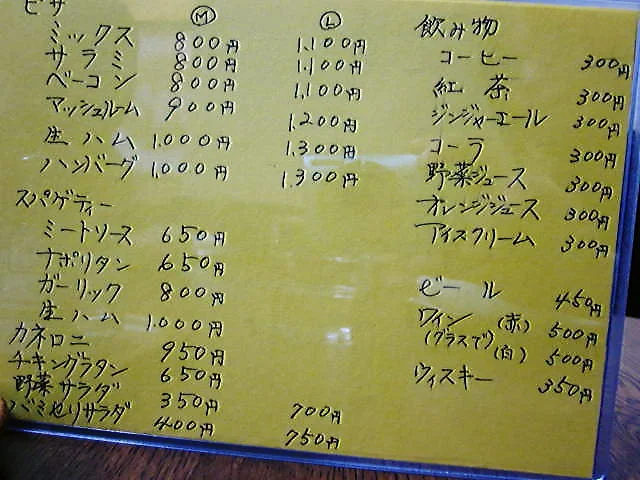 ピザ Ⓜ Ⓛ
ミックス 800円 1,100円
サラミ 800円 1,100円
ベーコン 800円 1,100円
マッシュルーム 900円 1,200円
生ハム 1,000円 1,300円
ハンバーグ 1,000円 1,300円
スパゲティー
ミートソース 650円
ナポリタン 650円
ガーリック 800円
生ハム 1,000円
カネロニ 950円
チキングラタン 650円
野菜サラダ 350円 700円
バミセリサラダ 400円 750円
飲み物
コーヒー 300円
紅茶 300円
ジンジャーエール 300円
コーラ 300円
野菜ジュース 300円
オレンジジュース 300円
アイスクリーム 300円
ビール 450円
ワイン (赤) 500円
(グラスで) (白) 500円
ウィスキー 350円